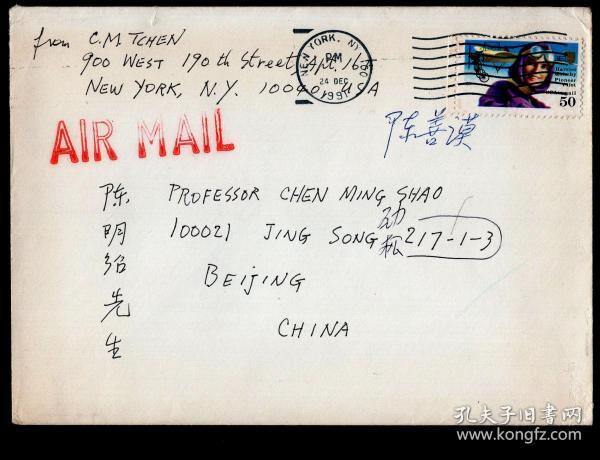 from C.M. TCHEN
900 WEST 190th Street, Apt. 16J
NEW YORK, N.Y. 10040 USA
NEW YORK, NY 100
PM
24 DEC
1991
Harriet
Quimby
Pioneer
Pilot
USAirmail
50
AIR MAIL
陈善谟
陈明绍先生
PROFESSOR CHEN MING SHAO
100021 JING SONG 劲松 217-1-3
BEIJING
CHINA
孔夫子旧书网
www.kongfz.com